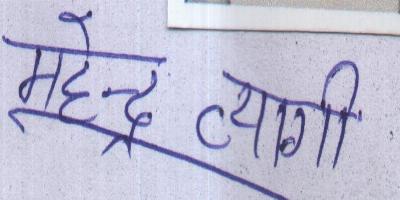 महेन्द्र त्यागी